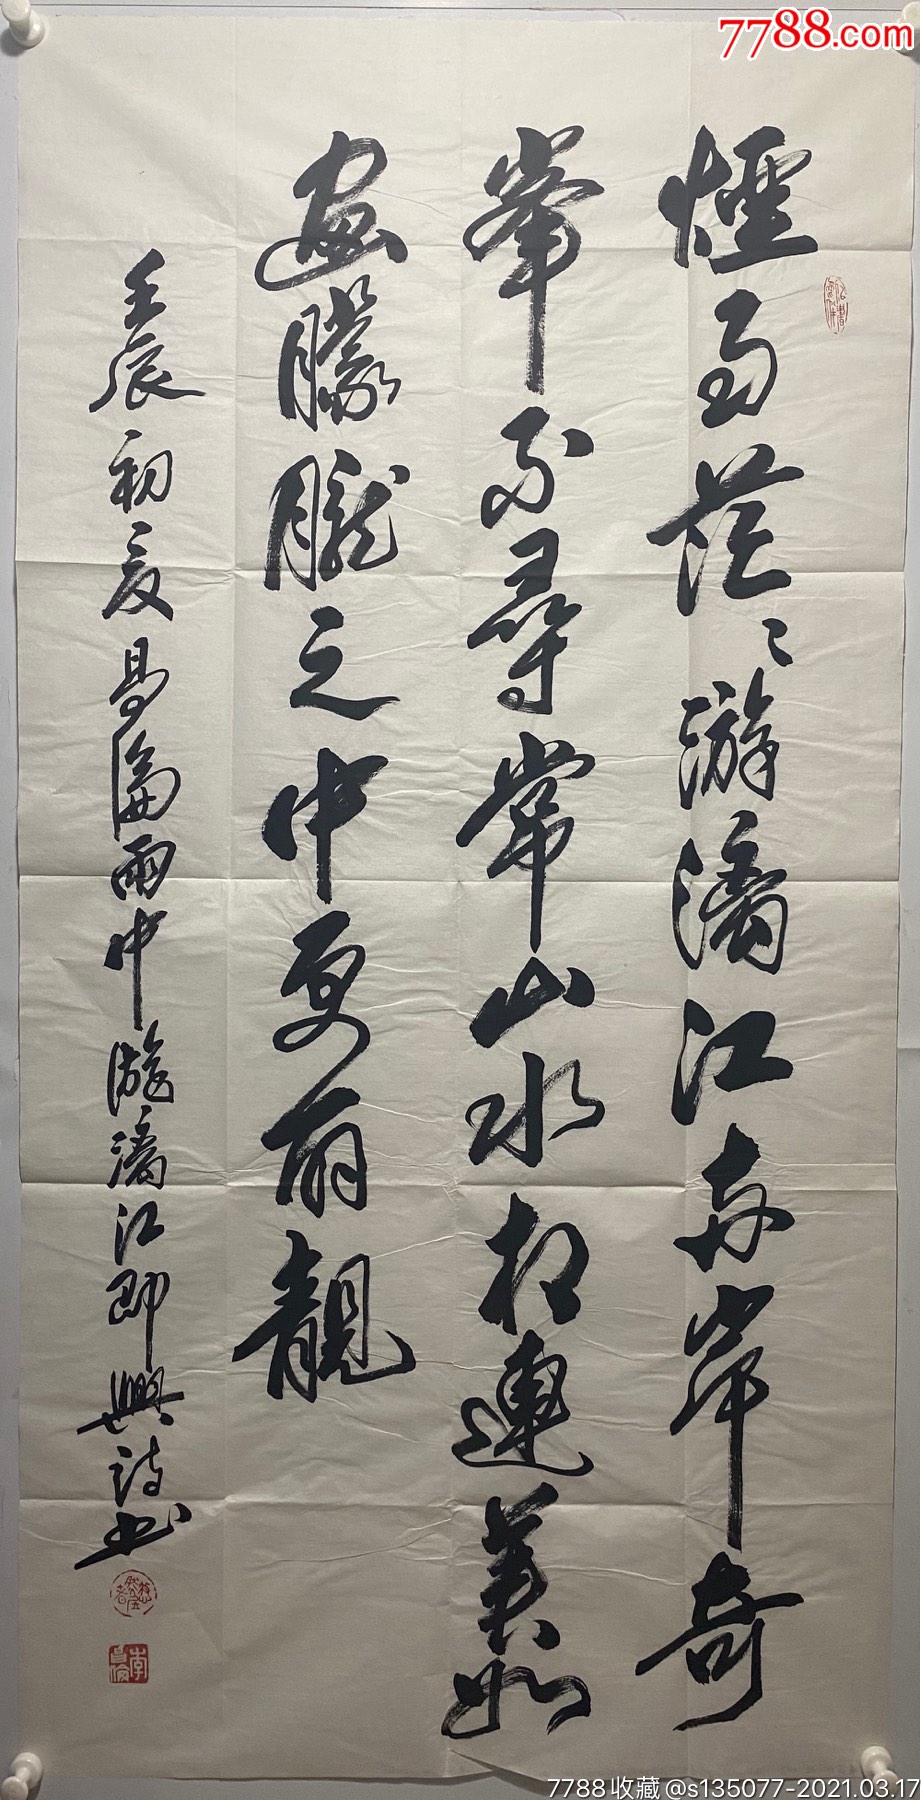 7788.com
煙雨茫々游漓江两岸奇
峯不尋常山水相連美如
画朦朧之中更丽靚
壬辰初夏昌雨中游漓江即興詩书
7788收藏@s135077-2021.03.17